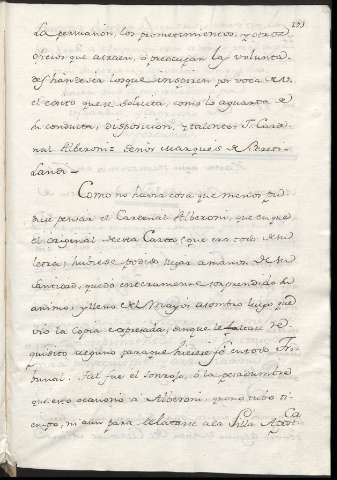 la persuasion, los prometimientos, y otros
oficios que atraen, ò preocupan las volunta-
des han de ser los que inspiren por voca de V.
el exito que se solicita, como lo aguarda de
su conducta, disposicion, y talentos F. Carde-
nal Alberoni = Señor Marques de Beret-
landi =
Como no havia cosa que menos pu-
diese pensar el Cardenal Alberoni, que en que
el original de esta Carta (que era toda de su
letra) hubiese podido llegar a manos de su
Santidad, quedo enteramente sorprendido su
animo, y lleno del mayor asombro luego que
vio la copia expresada, sin que le faltase re-
quisito alguno para que hiciese fè en todo Tri-
bunal. Tal fue el sonrojo, ò la pesadumbre
que esto ocasionò à Alberoni, que no tubo ti-
empo, ni aun para relatarse a la Silla Apost.ca